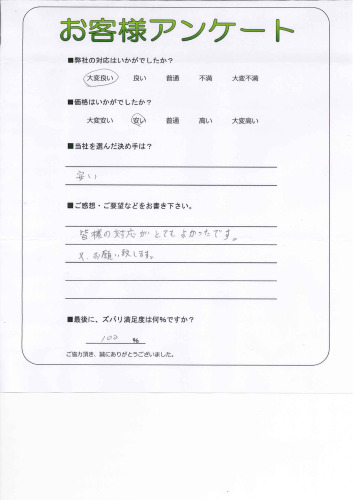 お客様アンケート
■弊社の対応はいかがでしたか？
大変良い 良い 普通 不満 大変不満
■価格はいかがでしたか？
大変安い 安い 普通 高い 大変高い
■当社を選んだ決め手は？
安い
■ご感想・ご要望などをお書き下さい。
皆様の対応がとてもよかったです。
又、お願い致します。
■最後に、ズバリ満足度は何％ですか？
100 ％
ご協力頂き、誠にありがとうございました。